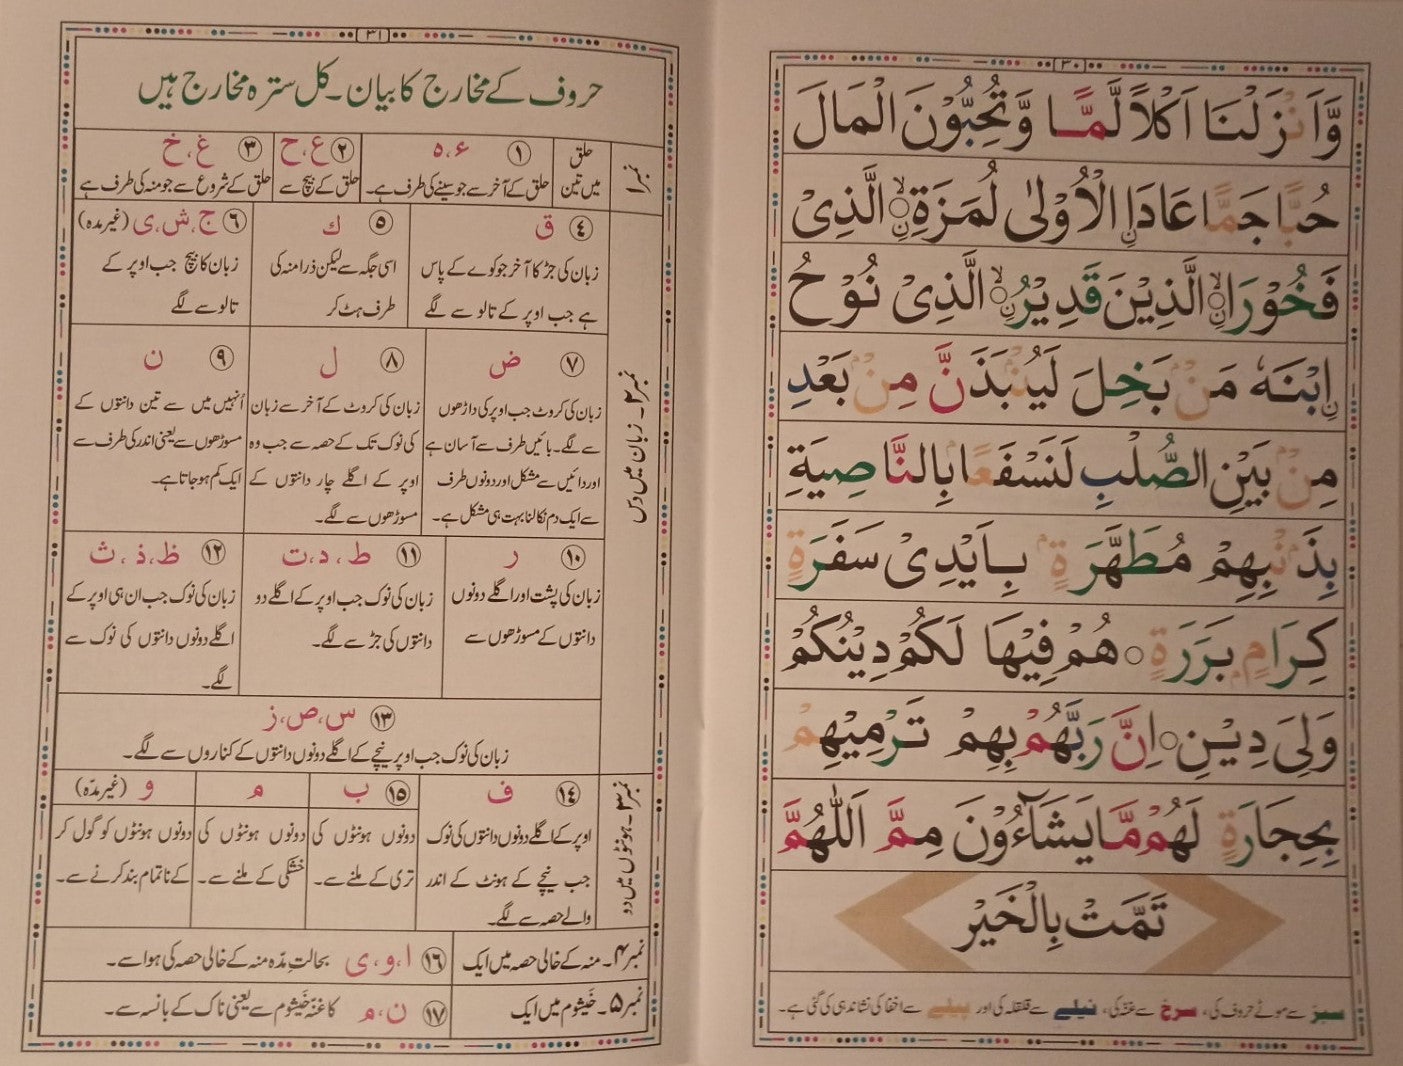 ٣٠
وَّاَنْزَلْنَا اَكْلًا لَّمًّا وَّتُحِبُّوْنَ الْمَالَ
حُبًّا جَمًّا عَادَاۨ الْاُوْلٰى لُمَزَةِۙ۟ۨ الَّذِیْ
فَخُوْرَاۙ۟ۨ الَّذِیْنَ قَدِیْرُۙ۟ۨ الَّذِیْ نُوْحُ
ۨابْنَهٗ مَنْۢ بَخِلَ لَیُنْۢبَذَنَّ مِنْۢ بَعْدِ
مِنْۢ بَیْنِ الصُّلْبِ لَنَسْفَعًۢا بِالنَّاصِیَةِ
بِذَنْۢبِهِمْ مُطَهَّرَةٍۭ بِاَیْدِیْ سَفَرَةٍ
كِرَامٍۭ بَرَرَةٍ ○ هُمْ فِیْهَا لَكُمْ دِیْنُكُمْ
وَلِیَ دِیْنِ ○ اِنَّ رَبَّهُمْ بِهِمْ تَرْمِیْهِمْ
بِحِجَارَةٍ لَهُمْ مَّا یَشَآءُوْنَ مِمَّ اَللّٰهُمَّ
تَمَّتْ بِالْخَیْر
سبز سے موٹے حروف کی، سرخ سے غنّہ کی، نیلے سے قلقلہ کی اور پیلے سے اخفا کی نشاندہی کی گئی ہے۔
٣١
حروف کے مخارج کا بیان۔ کل سترہ مخارج ہیں
نمبر۱
حلق میں تین
① ء، ہ
حلق کے آخر سے جو سینے کی طرف ہے۔
② ع، ح
حلق کے بیچ سے
③ غ، خ
حلق کے شروع سے جو منہ کی طرف ہے
نمبر۲۔ زبان میں دس
④ ق
زبان کی جڑ کا آخر جو کوے کے پاس
ہے جب اوپر کے تالو سے لگے
⑤ ك
اسی جگہ سے لیکن ذرا منہ کی
طرف ہٹ کر
⑥ ج، ش، ی (غیر مدہ)
زبان کا بیچ جب اوپر کے
تالو سے لگے
⑦ ض
زبان کی کروٹ جب اوپر کی داڑھوں
سے لگے۔ بائیں طرف سے آسان ہے
اور دائیں سے مشکل اور دونوں طرف
سے ایک دم نکالنا بہت ہی مشکل ہے۔
⑧ ل
زبان کی کروٹ کے آخر سے زبان
کی نوک تک کے حصہ سے جب وہ
اوپر کے اگلے چار دانتوں کے
مسوڑھوں سے لگے۔
⑨ ن
اُنہیں میں سے تین دانتوں کے
مسوڑھوں سے یعنی اندر کی طرف سے
ایک کم ہوجاتا ہے۔
⑩ ر
زبان کی پشت اور اگلے دونوں
دانتوں کے مسوڑھوں سے
⑪ ط، د، ت
زبان کی نوک جب اوپر کے اگلے دو
دانتوں کی جڑ سے لگے۔
⑫ ظ، ذ، ث
زبان کی نوک جب ان ہی اوپر کے
اگلے دونوں دانتوں کی نوک سے
لگے۔
⑬ س، ص، ز
زبان کی نوک جب اوپر نیچے کے اگلے دونوں دانتوں کے کناروں سے لگے۔
نمبر۳۔ ہونٹوں میں دو
⑭ ف
اوپر کے اگلے دونوں دانتوں کی نوک
جب نیچے کے ہونٹ کے اندر
والے حصہ سے لگے۔
⑮ ب
دونوں ہونٹوں کی
تری کے ملنے سے۔
م
دونوں ہونٹوں کی
خشکی کے ملنے سے۔
و (غیر مدّہ)
دونوں ہونٹوں کو گول کر
کے ناتمام بند کرنے سے۔
نمبر۴۔ منہ کے خالی حصہ میں ایک
⑯ ا، و، ی بحالتِ مدّہ منہ کے خالی حصہ کی ہوا سے۔
نمبر۵۔ خَیشوم میں ایک
⑰ ن، م کا غنّہ خَیشوم سے یعنی ناک کے بانسہ سے۔